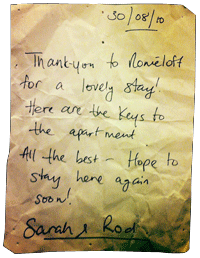 30/08/10
Thank-you to Romeloft
for a lovely stay!
Here are the Keys to
the apartment
All the best – Hope to
stay here again
soon!
Sarah & Rod